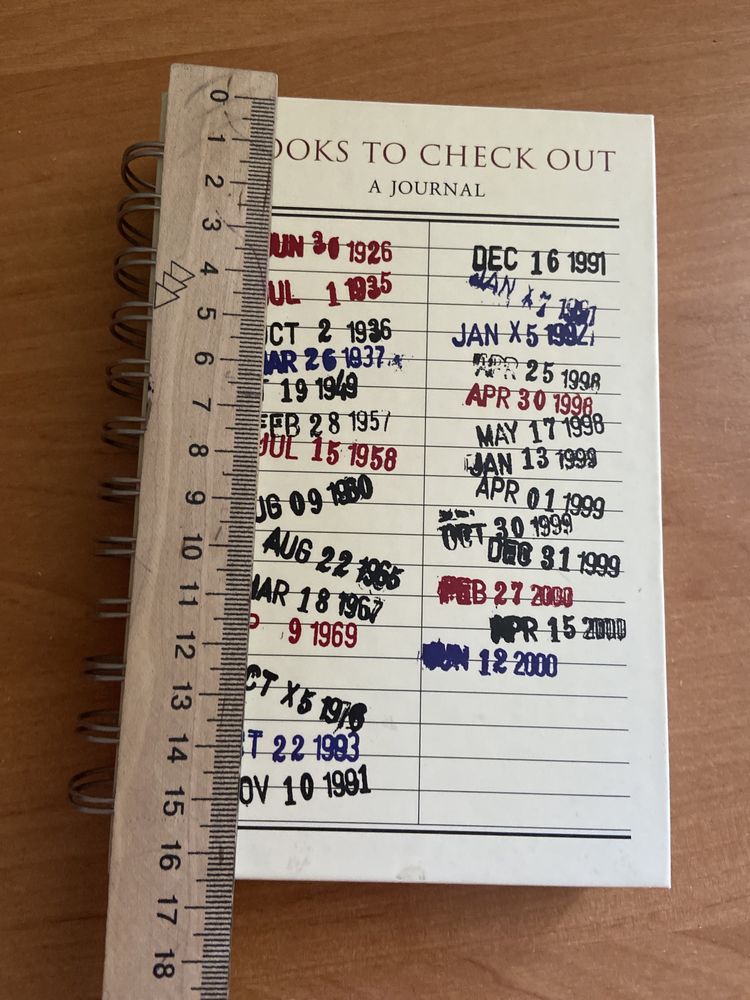 0
1
2
3
4
5
6
7
8
9
10
11
12
13
14
15
16
17
18
OOKS TO CHECK OUT
A JOURNAL
JUN 30 1926
UL 1 1935
CT 2 1936
AR 26 1937
19 1949
FEB 28 1957
JUL 15 1958
UG 09 1960
AUG 22 1965
MAR 18 1967
P 9 1969
CT X5
T 22
OV 10
DEC 16 1991
JAN
JAN X5 1992
APR 25 1998
APR 30 1998
MAY 17 1998
JAN 13 1999
APR 01 1999
OCT 30 1999
DEC 31 1999
FEB 27 2000
APR 15 2000
JUN 12 2000